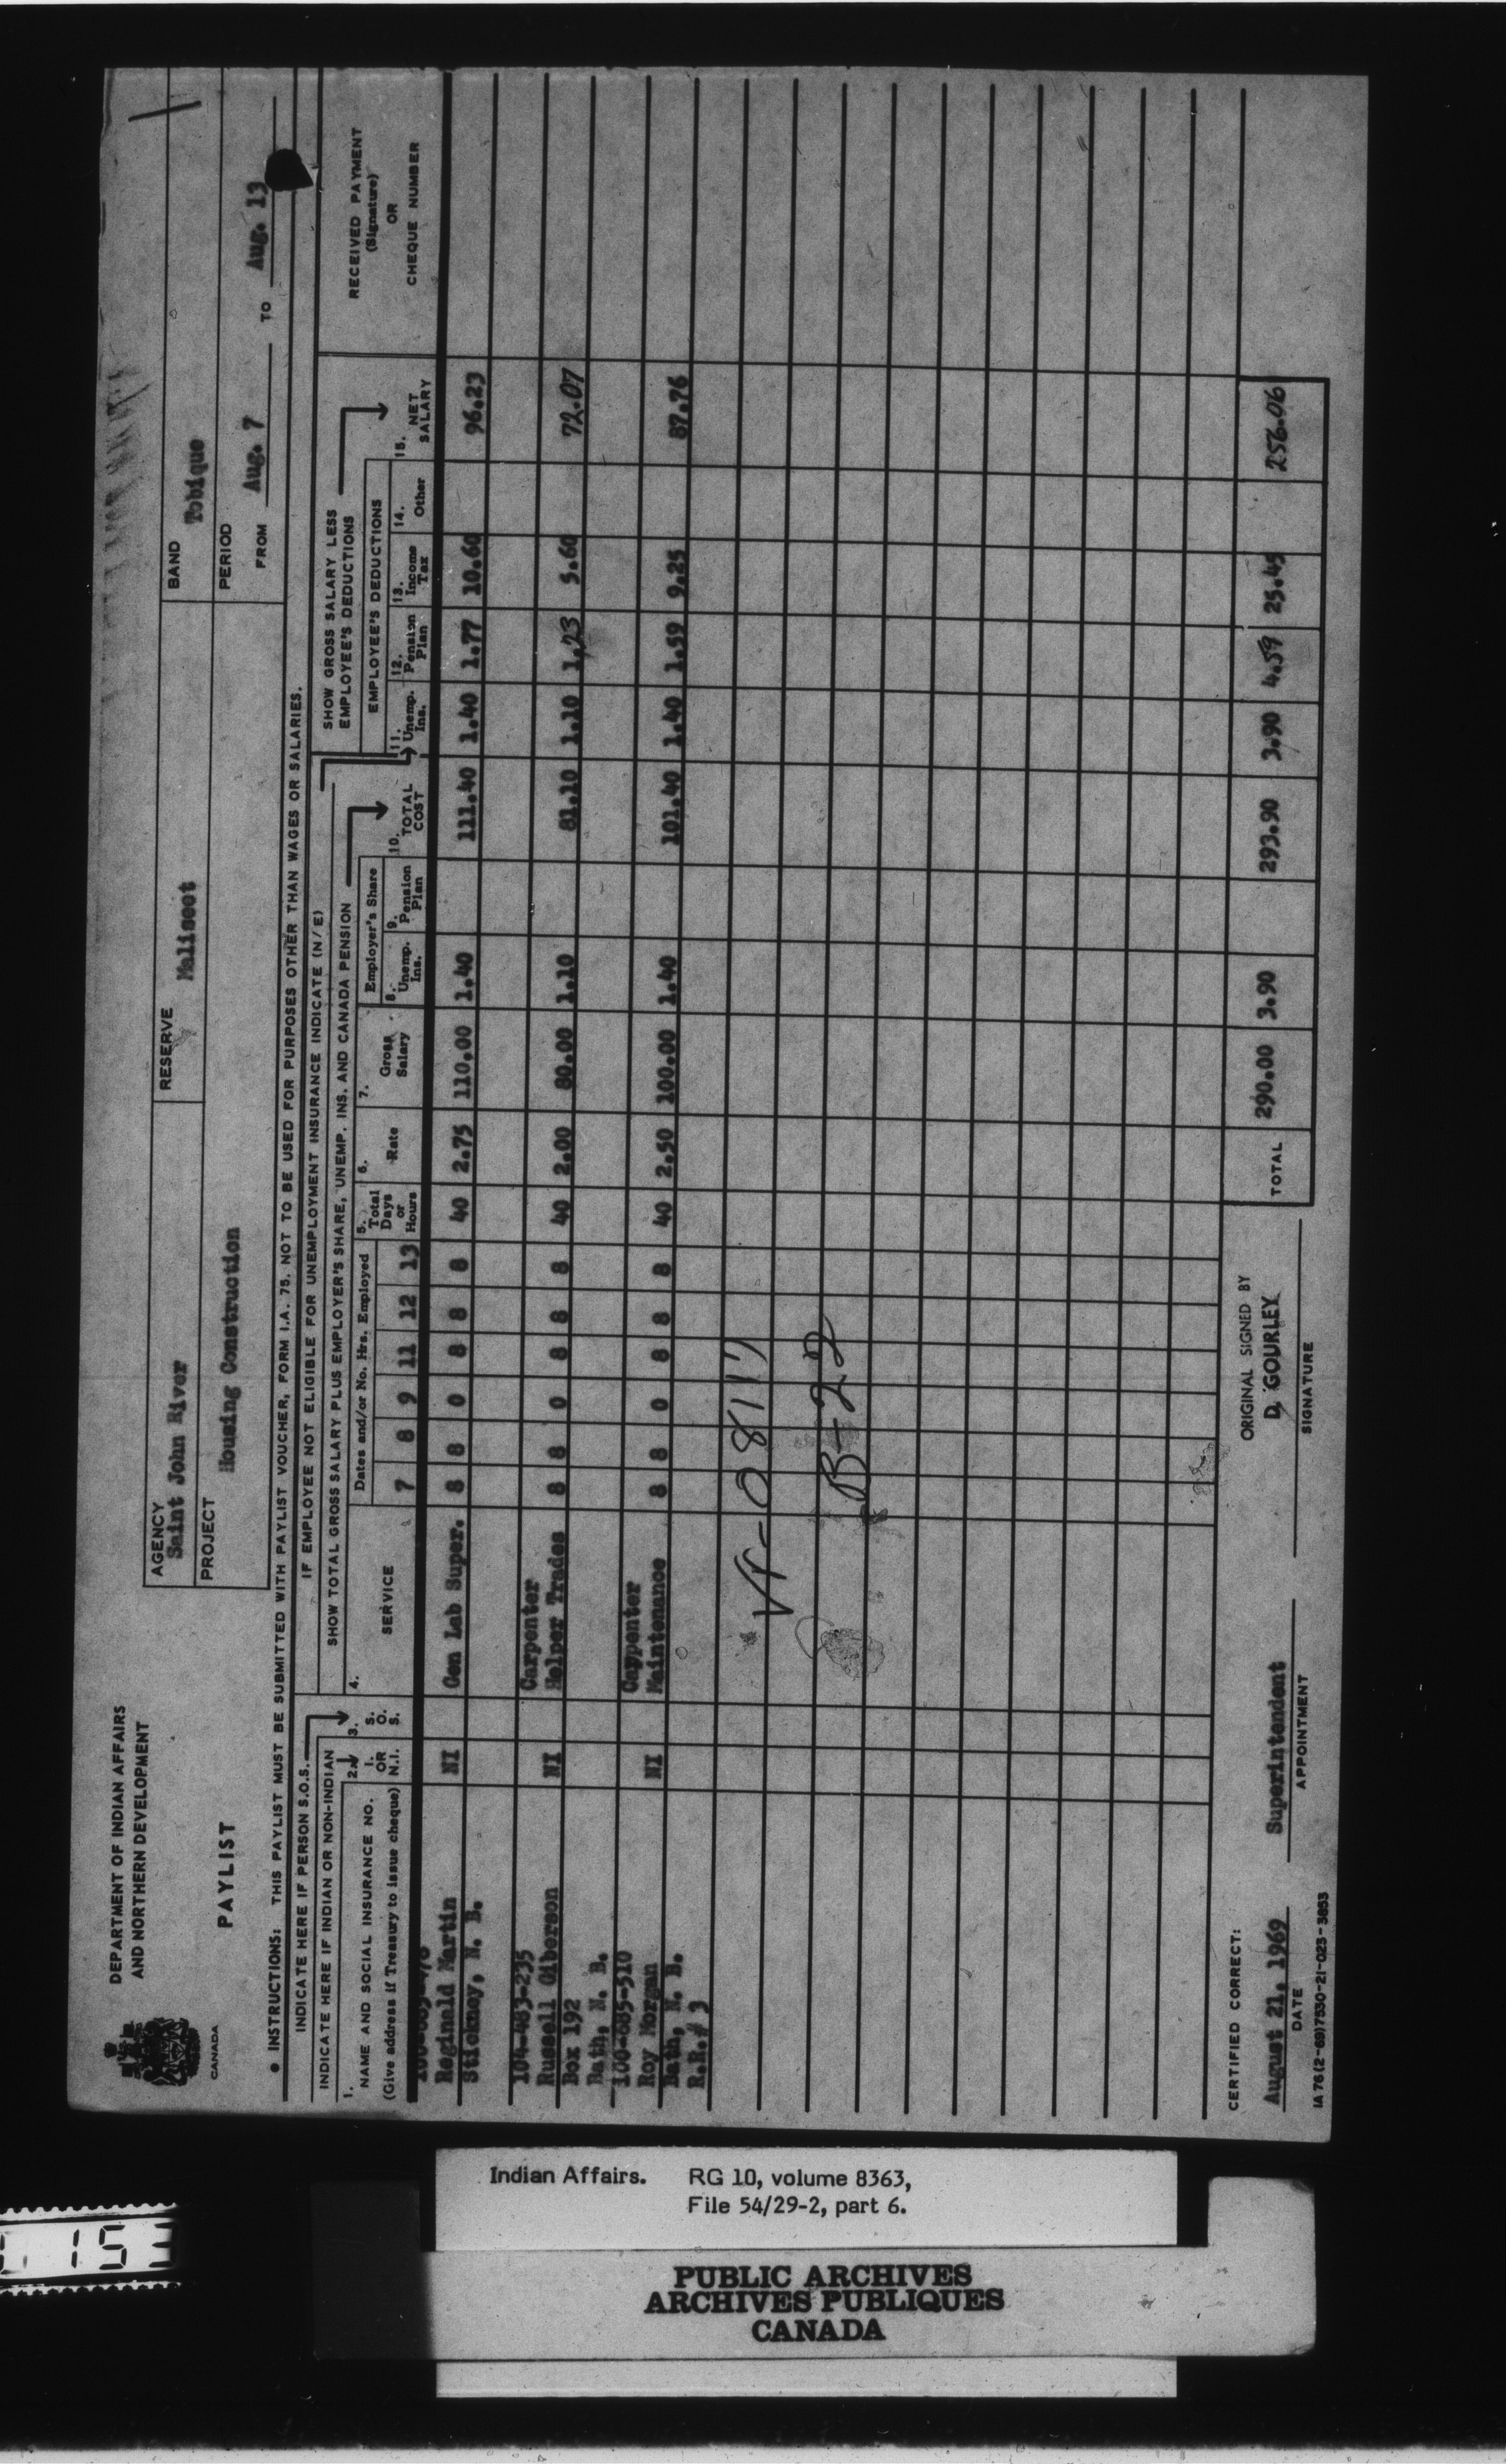 DEPARTMENT OF INDIAN AFFAIRS
AND NORTHERN DEVELOPMENT
CANADA
PAYLIST
AGENCY
Saint John River
RESERVE
Maliseet
BAND
Tobique
PROJECT
Housing Construction
PERIOD
FROM Aug. 7 TO Aug. 13
● INSTRUCTIONS: THIS PAYLIST MUST BE SUBMITTED WITH PAYLIST VOUCHER, FORM I.A. 75. NOT TO BE USED FOR PURPOSES OTHER THAN WAGES OR SALARIES.
INDICATE HERE IF PERSON S.O.S.
IF EMPLOYEE NOT ELIGIBLE FOR UNEMPLOYMENT INSURANCE INDICATE (N/E)
INDICATE HERE IF INDIAN OR NON-INDIAN
SHOW TOTAL GROSS SALARY PLUS EMPLOYER'S SHARE, UNEMP. INS. AND CANADA PENSION
SHOW GROSS SALARY LESS
EMPLOYEE'S DEDUCTIONS
1. NAME AND SOCIAL INSURANCE NO.
(Give address if Treasury to issue cheque)
2. I. OR N.I.
3. S. O. S.
4. SERVICE
Dates and/or No. Hrs. Employed
7 8 9 11 12 13
5. Total Days or Hours
6. Rate
7. Gross Salary
Employer's Share
8. Unemp. Ins.
9. Pension Plan
10. TOTAL COST
EMPLOYEE'S DEDUCTIONS
11. Unemp. Ins.
12. Pension Plan
13. Income Tax
14. Other
15. NET SALARY
RECEIVED PAYMENT
(Signature)
OR
CHEQUE NUMBER
Reginald Martin NI Gen Lab Super. 8 8 0 8 8 8 40 2.75 110.00 1.40 111.40 1.40 1.77 10.60 96.23
Stickney, N. B.
104-483-235 Carpenter
Russell Giberson NI Helper Trades 8 8 0 8 8 8 40 2.00 80.00 1.10 81.10 1.10 1.23 5.60 72.07
Box 192
Bath, N. B.
100-685-510 Cappenter
Roy Morgan NI Maintenance 8 8 0 8 8 8 40 2.50 100.00 1.40 101.40 1.40 1.59 9.25 87.76
Bath, N. B.
R.R.# 3
B-22
TOTAL 290.00 3.90 293.90 3.90 4.59 25.45 256.06
CERTIFIED CORRECT:
August 21, 1969
DATE
Superintendent
APPOINTMENT
ORIGINAL SIGNED BY
D. GOURLEY
SIGNATURE
IA 76 (2-69) 7530-21-023-3853
Indian Affairs. RG 10, volume 8363,
File 54/29-2, part 6.
PUBLIC ARCHIVES
ARCHIVES PUBLIQUES
CANADA